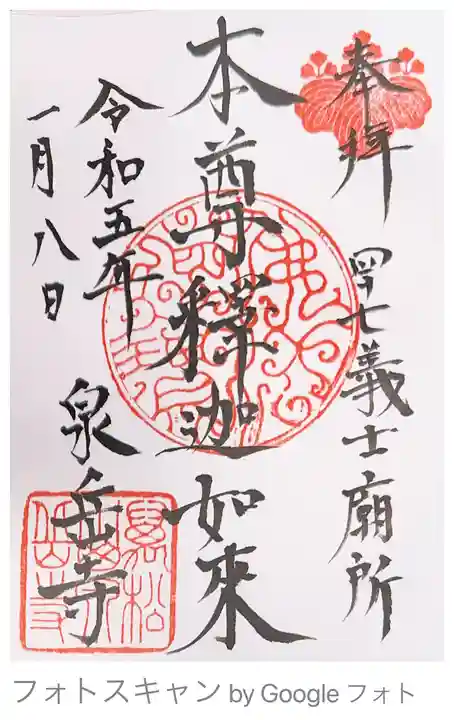 奉拝
四十七義士廟所
本尊釋迦如來
令和五年
一月八日
泉岳寺
フォトスキャン by Google フォト